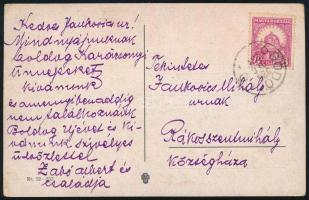 Kedves Jankovics úr!
Mindnyájuknak
boldog Karácsonyi
ünnepeket
Kívánunk
és amennyiben addig
nem találkoznánk
Boldog Újévet és Ki-
vánunk szívélyes
üdvözlettel
Zabó Albert és
családja
MAGYARORSZÁG
Tekintetes
Jankovics Mihály
úrnak
Rákosszentmihály
Községháza